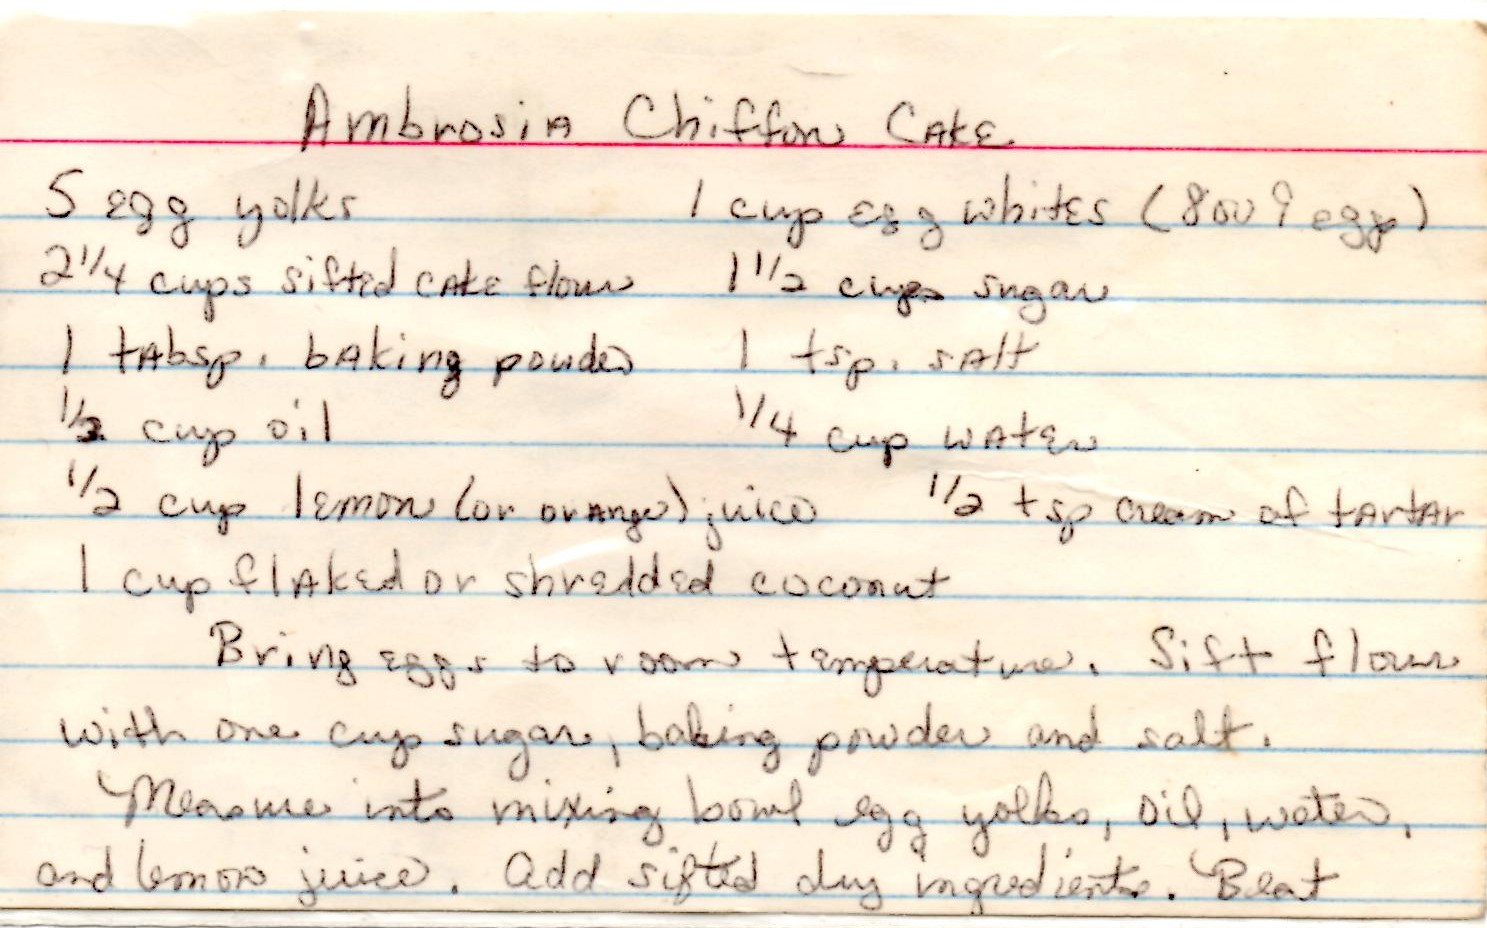 Ambrosia Chiffon Cake
5 egg yolks 1 cup egg whites (8 or 9 eggs)
2 1/4 cups sifted cake flour 1 1/2 cups sugar
1 tabsp. baking powder 1 tsp. salt
1/2 cup oil 1/4 cup water
1/2 cup lemon (or orange) juice 1/2 tsp cream of tartar
1 cup flaked or shredded coconut
Bring eggs to room temperature. Sift flour
with one cup sugar, baking powder and salt.
Measure into mixing bowl egg yolks, oil, water,
and lemon juice. Add sifted dry ingredients. Beat